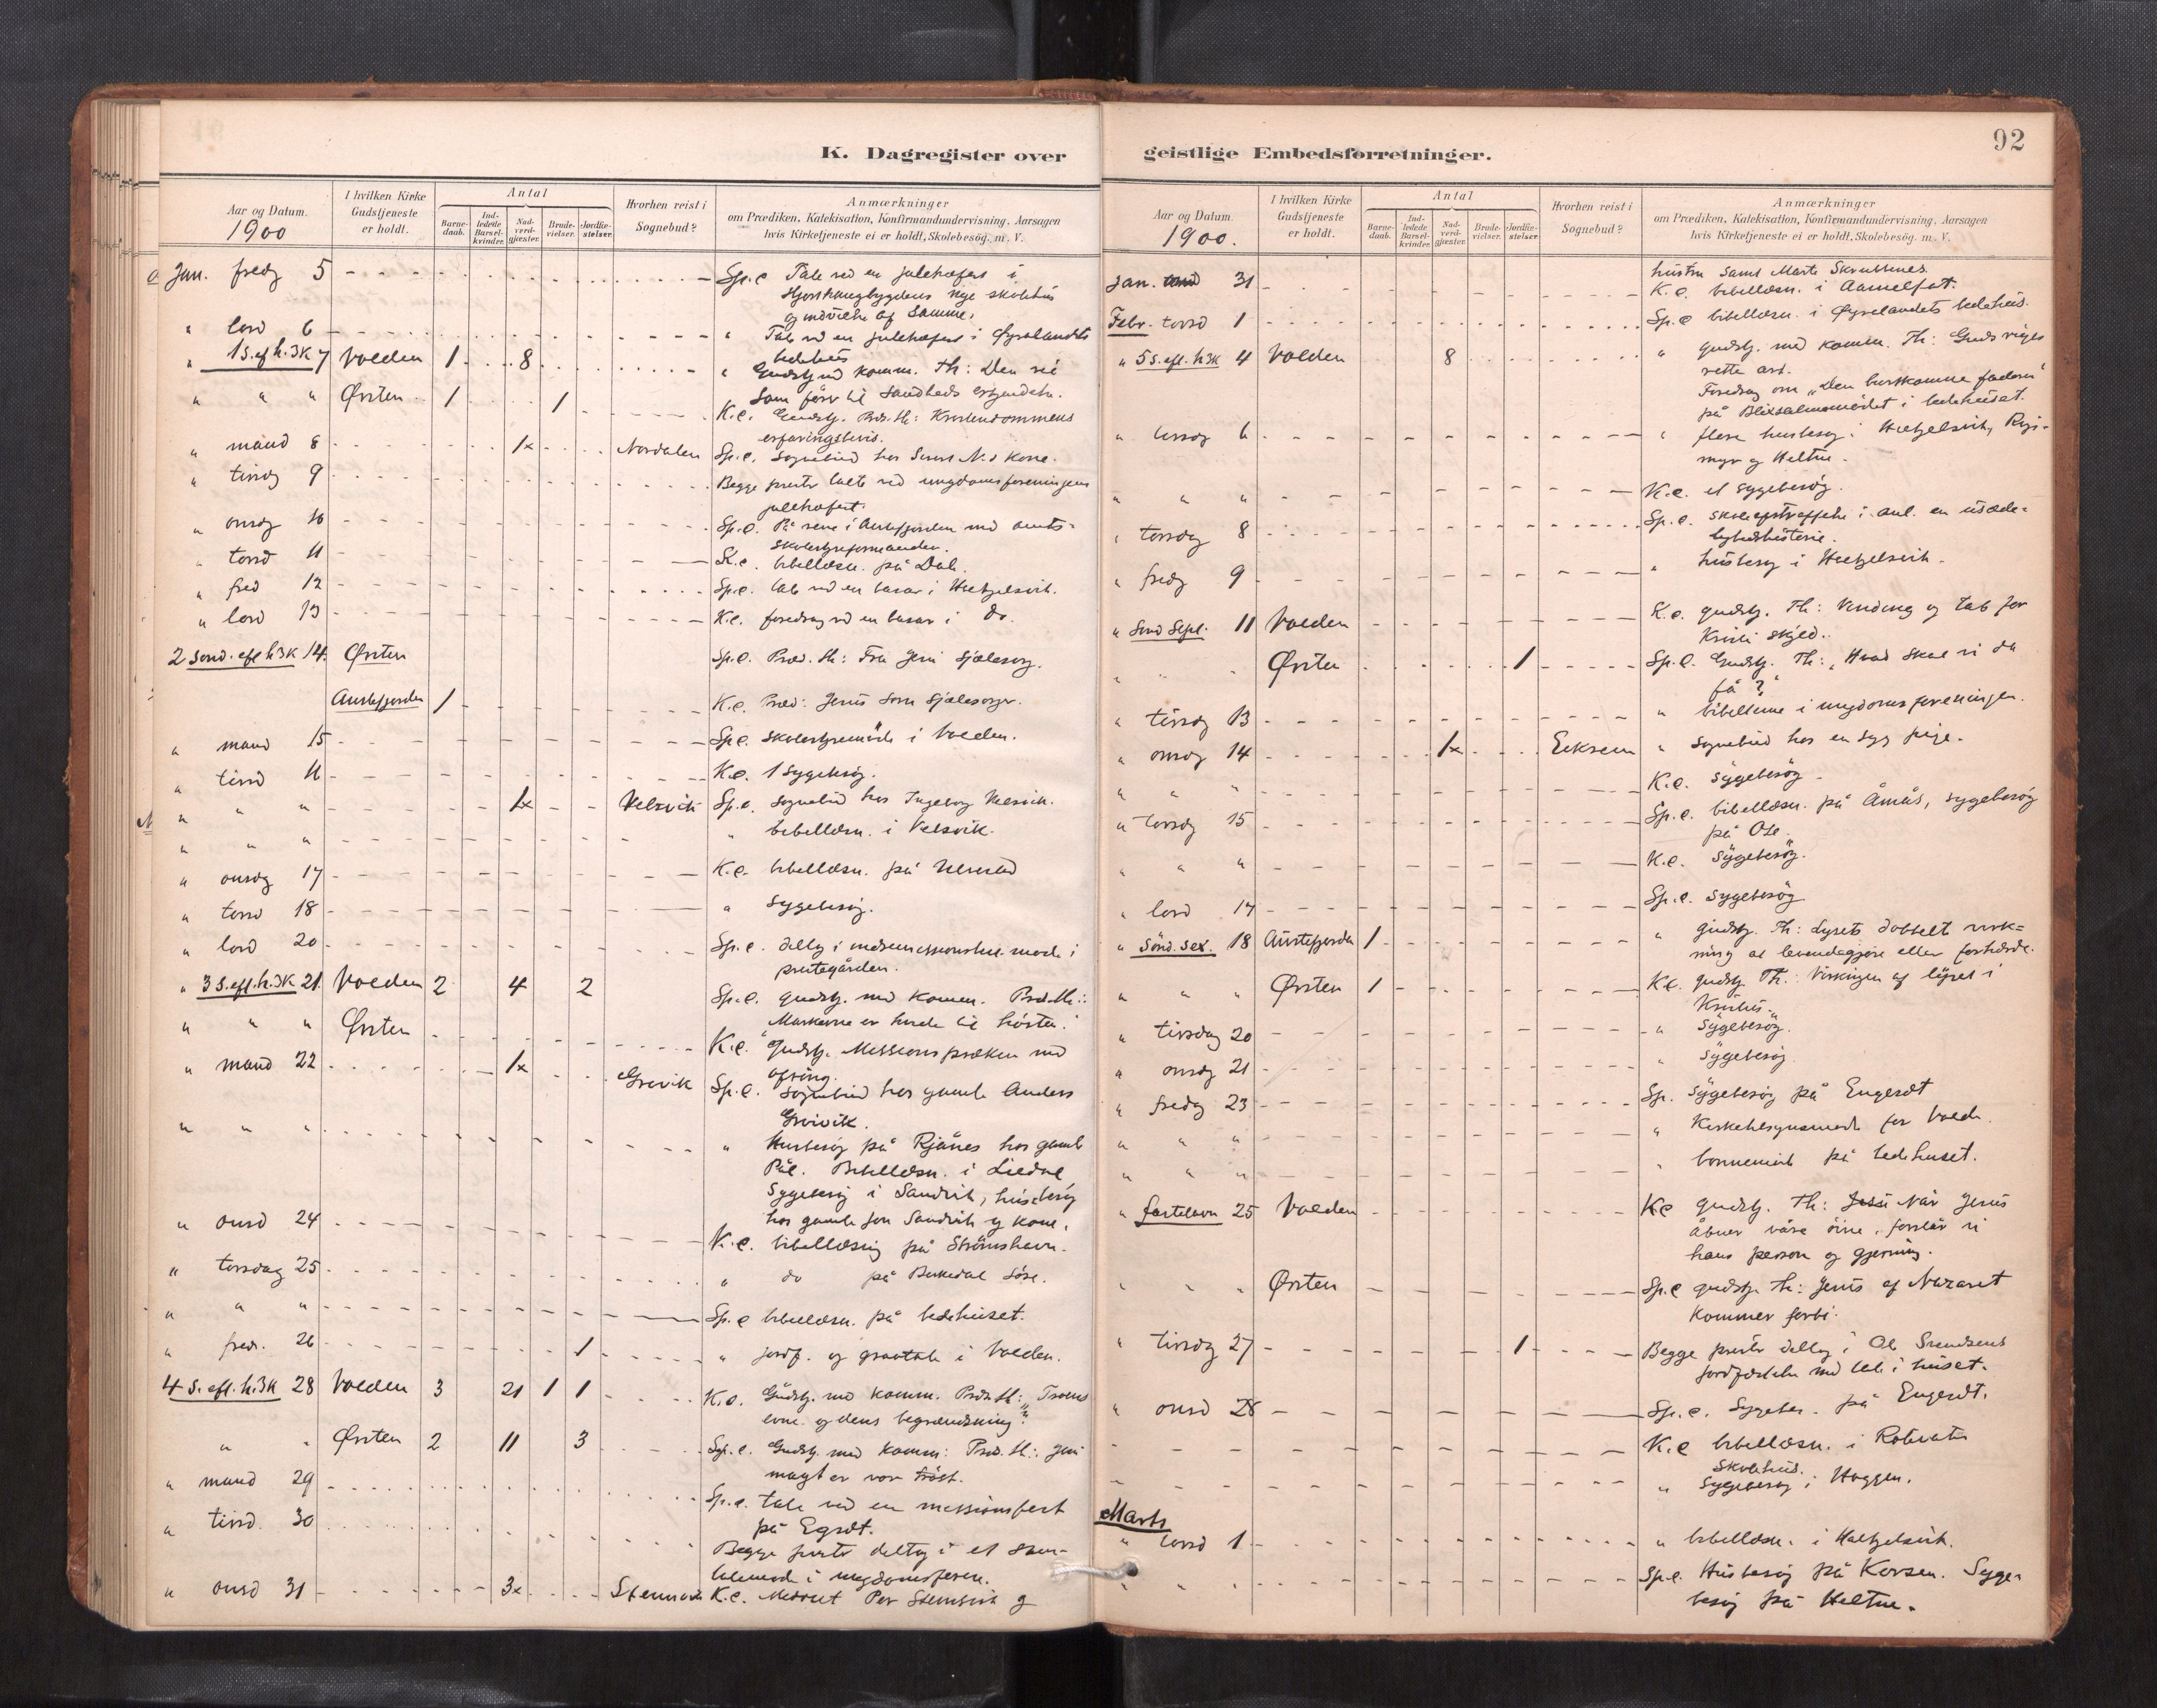 92
K. Dagregister over
geistlige Embedsforretninger.
Aar og Datum.
1900
I hvilken Kirke
Gudstjeneste
er holdt.
Antal
Barne-
daab.
Ind-
ledede
Barsel-
kvinder.
Nad-
verd-
gjæster.
Brude-
vielser.
Jordfæ-
stelser.
Hvorhen reist i
Sognebud?
Anmærkninger
om Prædiken, Katekisation, Konfirmandundervisning, Aarsagen
hvis Kirketjeneste ei er holdt, Skolebesög. m. V.
Jan. fredg 5 Sp.e Tale ved en julehøfest i
nye skolehus
og indvielse af samme.
" lørd 6 " Tale ved en julehøfest i Øyralandets
bedehus
" 1 S. ef h.3K 7 Volden 1 8 " Gudstj. med komm. Th: Den vei
som fører til Sandheds erkjendelse.
" " " Ørsten 1 1 K.e. Gudstj. Præd. th: Kristendommens
erfaringsbevis.
" månd 8 1x Nordalen Sp.e. Sognebud hos N.s kone.
" tirsdg 9 Begge prester talte ved ungdomsforeningens
julehøfest.
" onsdg 10 Sp.e. På reise i Austefjorden med amts-
skolestyreformanden.
" torsd 11 K.e. bibellæsn. på Dale.
" fred 12 Sp.e. tale ved en basar i Hætjelsvik.
" lørd 13 K.e. foredrag ved en basar i do.
2 sønd. eft h3K 14. Ørsten Sp.e. Præd. th: Fra Jesu sjælesorg.
Austefjorden 1 K.e. Præd: Jesus som sjælesørger.
" mand 15 Sp.e. skolestyremöde i Volden.
" tirsd 16 K.e. 1 Sygebesög.
" " " 1x Velsvik Sp.e. Sognebud hos Ingeborg Velsvik.
" " " " bibellæsn. i Velsvik.
" onsdg 17 K.e. bibellæsn. på Ulvestad
" torsd 18 " Sygebesög.
" lørd 20 Sp.e. deltog i indremissionsm. möde i
prestegården.
" 3 S. eft. h.3K 21. Volden 2 4 2 Sp.e. gudstj. med komm. Præd. th:
Markerne er hvide til hösten.
" " " Ørsten K.e. Gudstj. Missionspræken med
ofring.
" mand 22 1x Greivik Sp.e. Sognebud hos gamle Anders
Greivik.
" " " " Husbesög på Rjånes hos gamle
Pål. Bibellæsn. i Liedal
Sygebesög i Sandvik, husbesög
hos gamle Jon Sandvik og kone.
" onsd 24 K.e. bibellæsnig på Strömshavn.
" torsdag 25 " do på Birkedal söre.
" " " Sp.e bibellæsn. på bedehuset.
" fred. 26 1 " jordf. og gravtale i Volden.
4 S. eft. h.3K 28 Volden 3 21 1 1 K.e. Gudstj. med komm. Præd. th: "Troens
evne og dens begrændsning".
" " Ørsten 2 11 3 Sp.e. Gudstj. med komm: Præd. th: Jesu
magt er vor tröst.
" mand 29 Sp.e. tale ved en missionsfest
på Egset.
" tirsd. 30 Begge prester deltog i et
i ungdomsforen.
" onsd 31 3x Steinsvik K.e. Per Steinsvik og
Aar og Datum.
1900.
I hvilken Kirke
Gudstjeneste
er holdt.
Antal
Barne-
daab.
Ind-
ledede
Barsel-
kvinder.
Nad-
verd-
gjæster.
Brude-
vielser.
Jordfæ-
stelser.
Hvorhen reist i
Sognebud?
Anmærkninger
om Prædiken, Katekisation, Konfirmandundervisning, Aarsagen
hvis Kirketjeneste ei er holdt, Skolebesög. m. V.
hustru samt Marte
Jan. 31 K.e. bibellæsn. i Aamelfot.
Febr. torsd 1 Sp.e bibellæsn. i Øyralandets bedehus.
" 5 S. eft. h3K 4 Volden 8 " gudstj. med komm. Th: Guds riges
rette art.
Foredrag om "Den bortkomne faderen"
på i bedehuset.
" tirsdg 6 " flere husbesög i Hætjelsvik, Rys-
myr og Heltne.
" " " K.e. et sygebesög.
" torsdg 8 Sp.e. i anl. en usæde-
lighedshistorie.
" fredg 9 " husbesög i Hætjelsvik.
" Sønd Sept. 11 Volden K.e. gudstj. Th: Vinding og tab for
Kristi skyld.
" " " Ørsten 1 Sp.e. Gudstj. Th: "Hvad skal vi da
få?"
" tirsdg 13 " bibeltime i ungdomsforeningen.
" onsdg 14 1x Eiksem " Sognebud hos en syg pige.
" " " K.e. Sygebesög
" torsdg 15 Sp.e. bibellæsn. på Åmås, sygebesög
på Ose.
" " " K.e. Sygebesög.
" lørd 17 Sp.e. Sygebesög
" Sønd. Sex. 18 Austefjorden 1 " gudstj. Th: Lysets dobbelt virk-
ning at levendegjøre eller forhærde.
" " " Ørsten 1 K.e. gudstj. Th: Virkningen af lyset i
Kristus.
" tirsdag 20 " Sygebesög.
" onsdg 21 " Sygebesög.
" fredg 23 Sp. Sygebesög på Engeset
" " " " Kirketilsynsmöde for Volden.
" " " " bönnemöde på bedehuset.
" fastelavn 25 Volden K.e gudstj. Th: Når Jesus
åbner våre öine, forstår vi
hans person og gjerning.
" " " Ørsten Sp.e gudstj. th: Jesus af Nazaret
kommer forbi.
" tirsdg 27 1 Begge prester deltog i Ol Svendsens
jordfæstelse med tale i huset.
" onsd 28 Sp.e. Sygebes. på Engeset.
K.e bibellæsn. i
Skolehus.
" Sygebesög i Haggen.
Marts
" torsd 1 " bibellæsn. i Hætjelsvik.
" " " Sp.e. Husbesög på Korsen. Syge-
besög på Heltne.